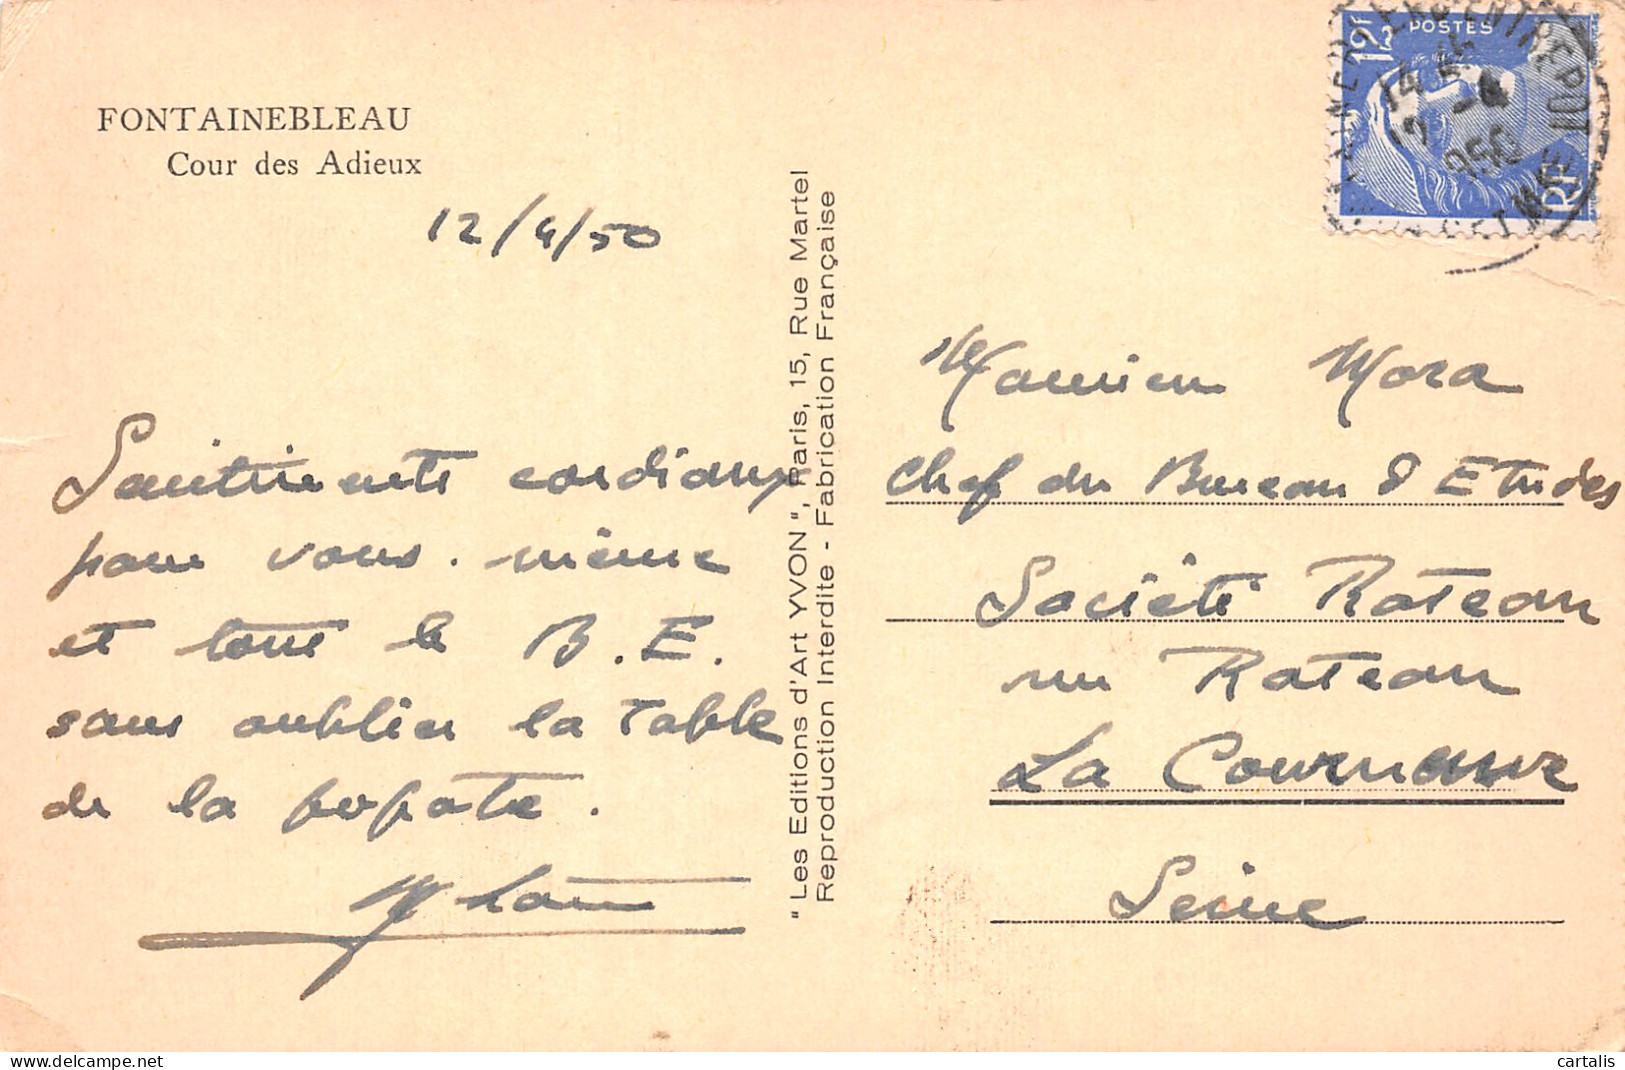 FONTAINEBLEAU
Cour des Adieux
12/4/50
Sentiments cordiaux
pour vous. même
et tous le B.E.
sans oublier la table
de la popote.
"Les Editions d'Art YVON", Paris, 15, Rue Martel
Reproduction Interdite - Fabrication Française
12F POSTES
RF
14
12 -4
1950
ENTREPOT
Monsieur Mora
Chef du Bureau d'Etudes
Société Rateau
rue Rateau
La Courneuve
Seine
cartalis